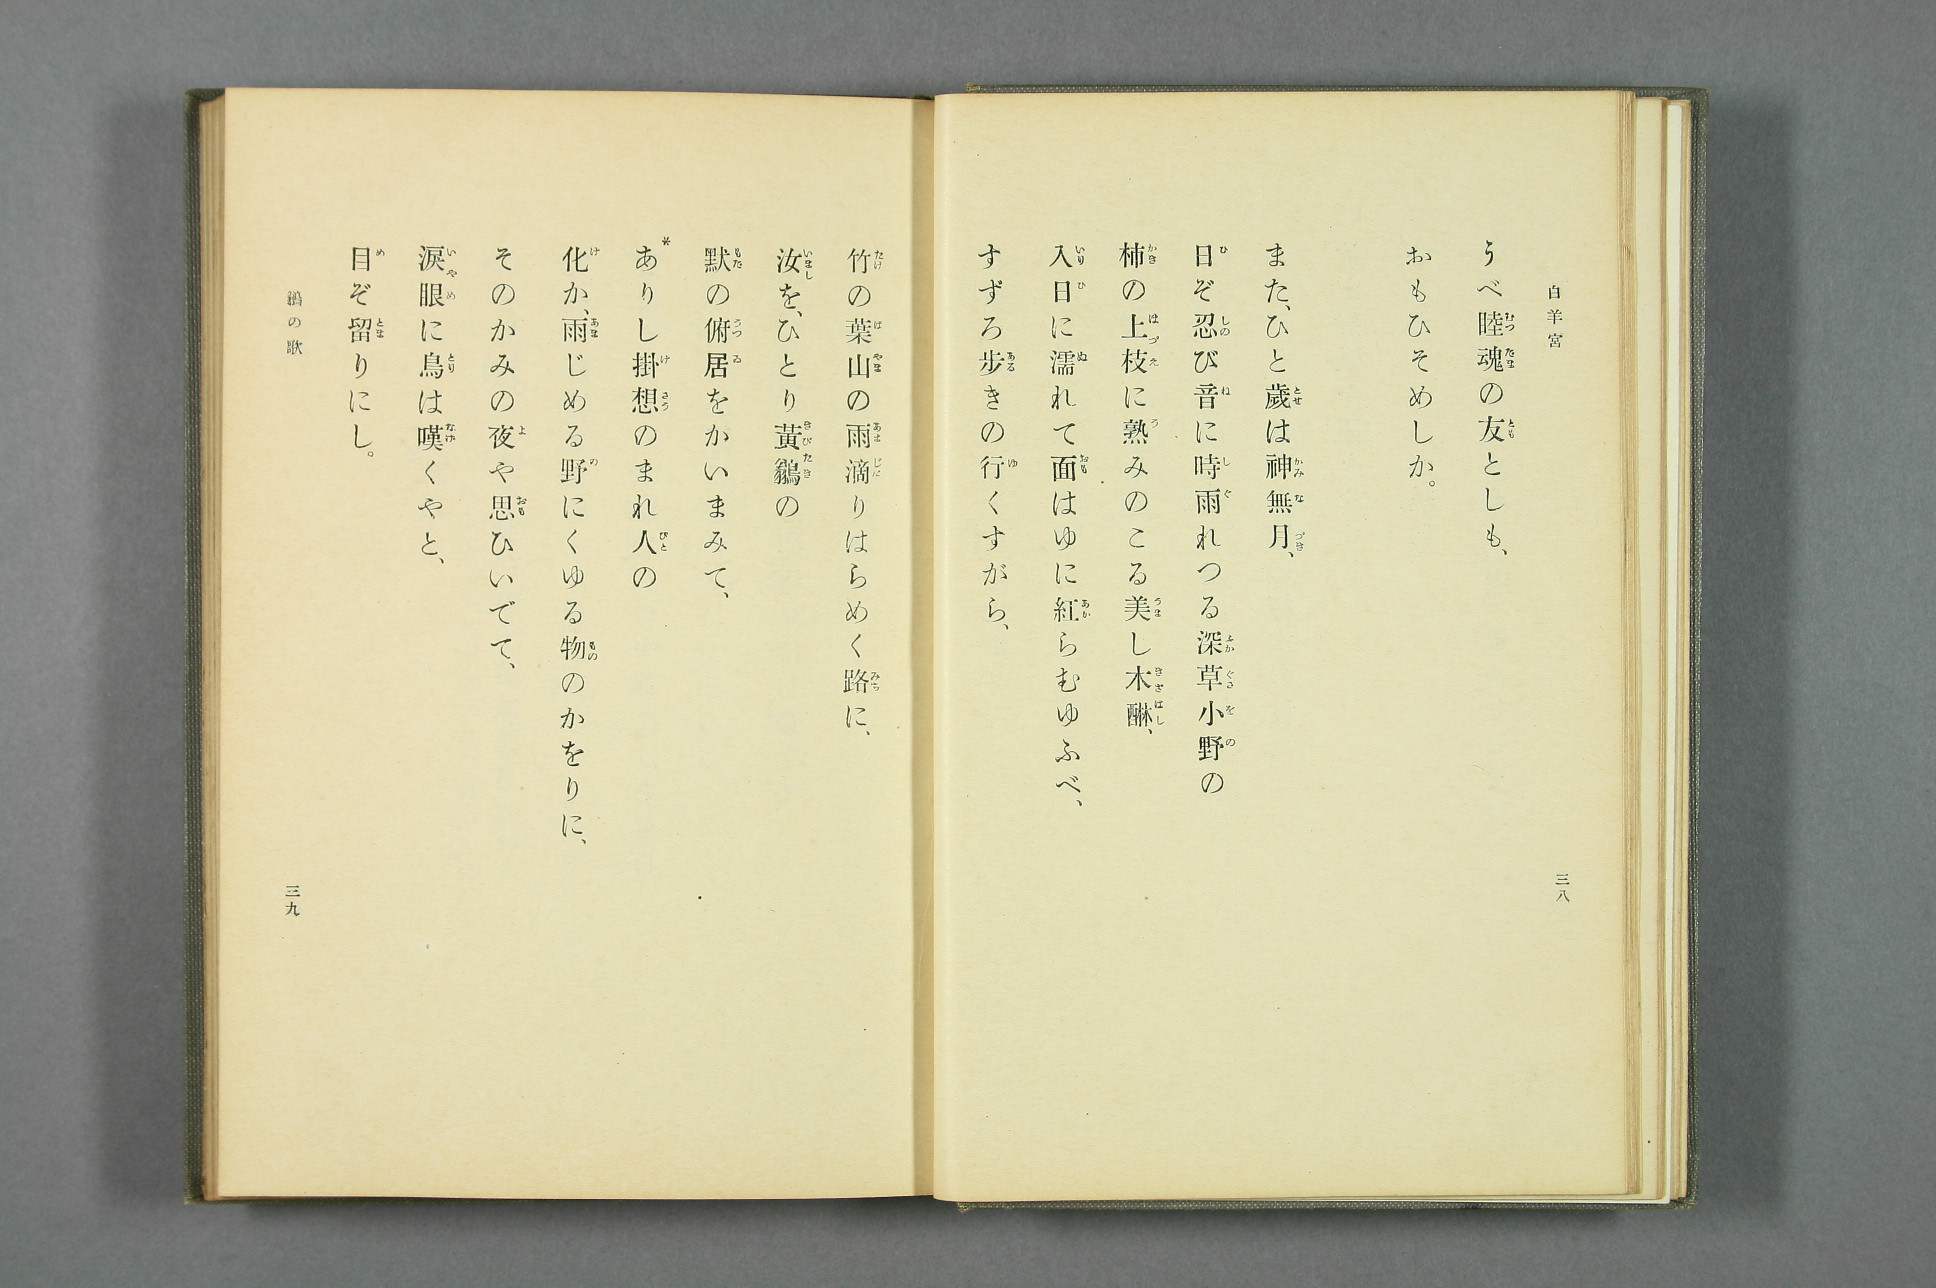 白羊宮
うべ睦魂の友としも、
おもひそめしか。
また、ひと歲は神無月、
日ぞ忍び音に時雨れつる深草小野の
柿の上枝に熟みのこる美し木醂、
入日に濡れて面はゆに紅らむゆふべ、
すずろ步きの行くすがら、
三八
竹の葉山の雨滴りはらめく路に、
汝を、ひとり黃鶲の
默の俯居をかいまみて、
*ありし掛想のまれ人の
化か、雨じめる野にくゆる物のかをりに、
そのかみの夜や思ひいでて、
淚眼に鳥は嘆くやと、
目ぞ留りにし。
鶲の歌
三九